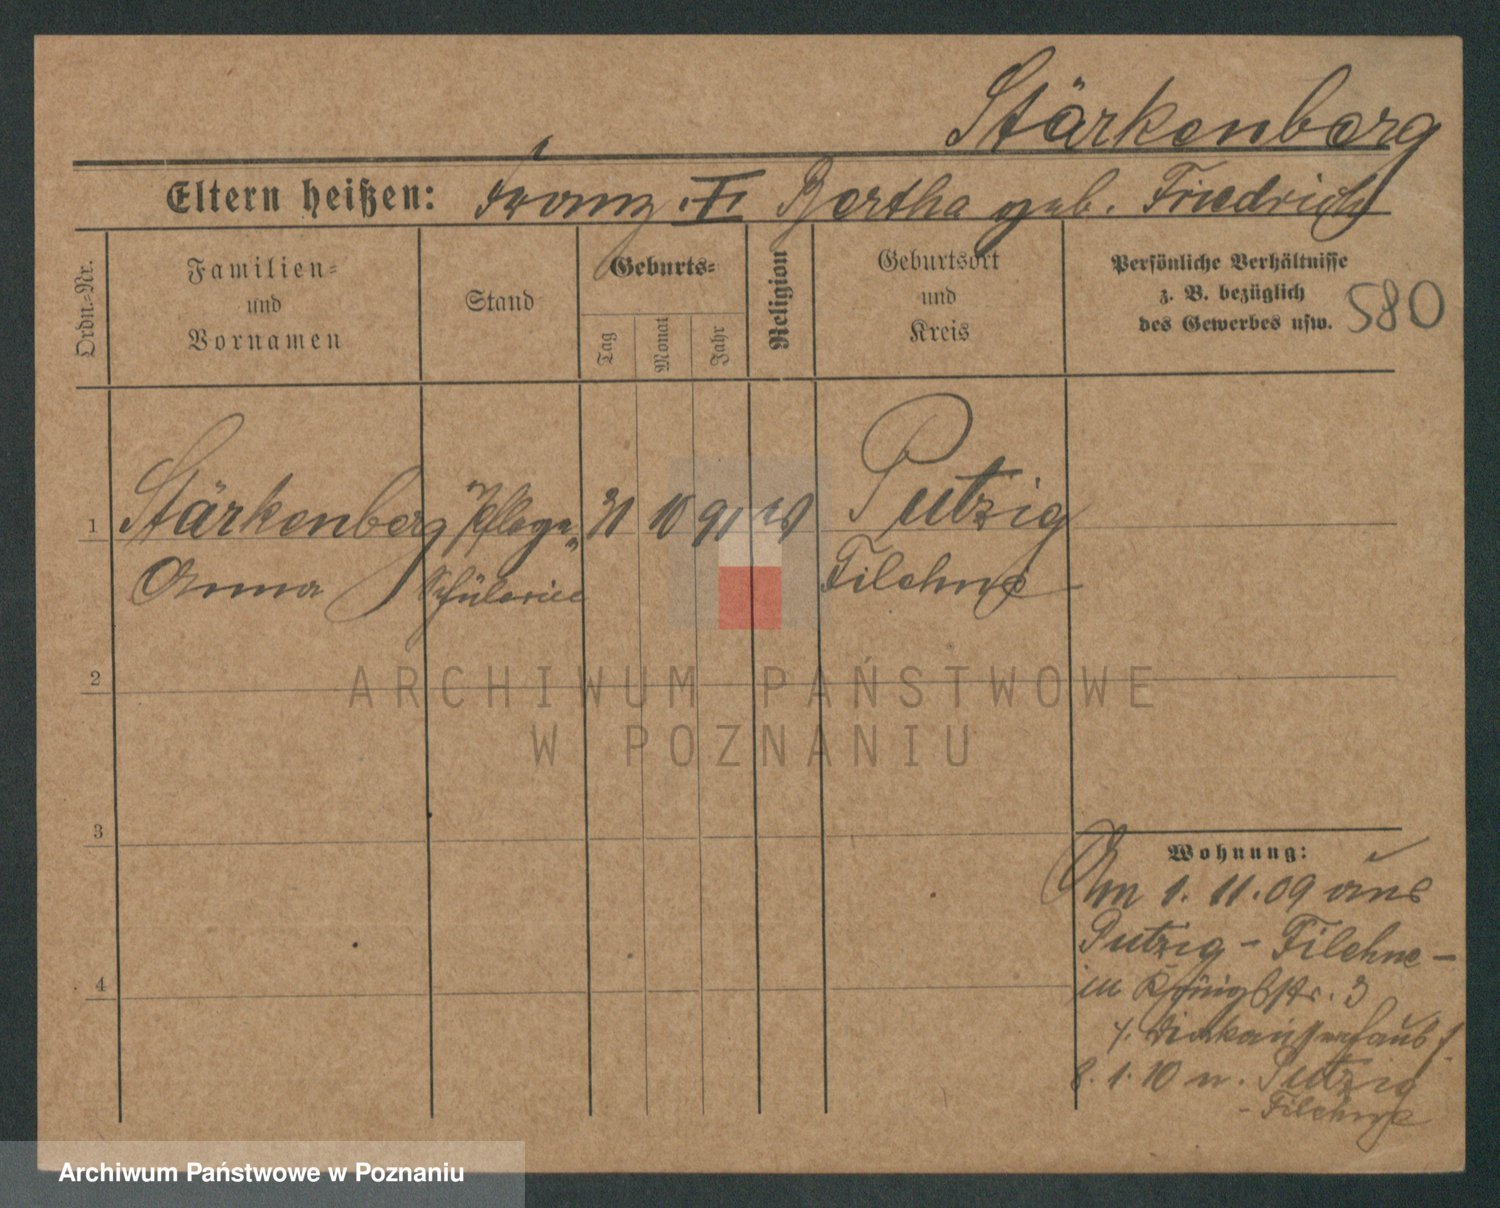 Stärkenberg
Eltern heißen: Franz. Bertha geb. Friedrich
Ordn.-Nr.
Familien-
und
Vornamen
Stand
Geburts-
Tag
Monat
Jahr
Religion
Geburtsort
und
Kreis
Persönliche Verhältnisse
z. B. bezüglich
des Gewerbes usw.
580
1 Stärkenberg Pflege- 31 10 91 Putzig
Anna Schülerin Filehne
2
3
4
Wohnung:
Am 1. 11. 09 aus
Putzig - Filehne -
in Königstr. 3
8. 1. 10 n. Putzig
- Filehne
ARCHIWUM PAŃSTWOWE
W POZNANIU
Archiwum Państwowe w Poznaniu